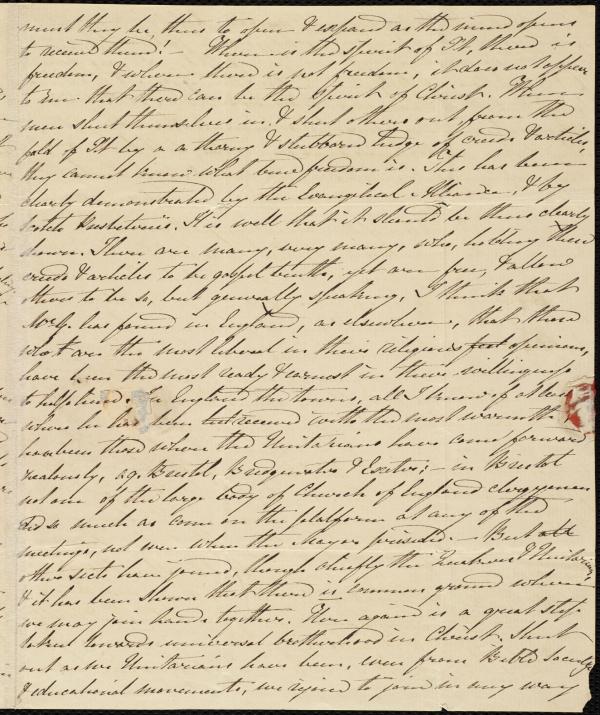 must they be, thus to open & expand as the mind opens
to receive them! – Where is the spirit of Xt, there is
freedom, & where there is not freedom, it does not appear
to me that there can be the Spirit of Christ. When
men shut themselves in, & shut others out from the
fold of Xt by a thorny & stubborn hedge of creeds & articles,
they cannot know what true freedom is. This has been
clearly demonstrated by the Evangelical Alliance, & by
Scotch Presbyteries. It is well that it should be thus clearly
shown. There are many, very many, who, holding these
creeds & articles to be gospel truths, yet are free, & allow
others to be so, but generally speaking, I think that
Mr G. has found in England, as elsewhere, that those
who are the most liberal in their religious opinions,
have been the most ready & earnest in their willingness
to help him. In England the towns, all I know of at least
where he has been received with the most warmth
have been those where the Unitarians have come forward
zealously, e.g. Bristol, Bridgewater & Exeter; – in Bristol
not one of the large body of Church of England clergymen
did so much as come on the platform at any of the
meetings, not even when the mayor presided. – But
other sects have joined, though chiefly the Quakers & Unitarians,
& it has been shown that there is common ground where
we may join hands together. Here again is a great step
taken towards universal brotherhood in Christ. Shut
out as we Unitarians have been, even from Bible Society
& educational movements, we rejoice to join in any way